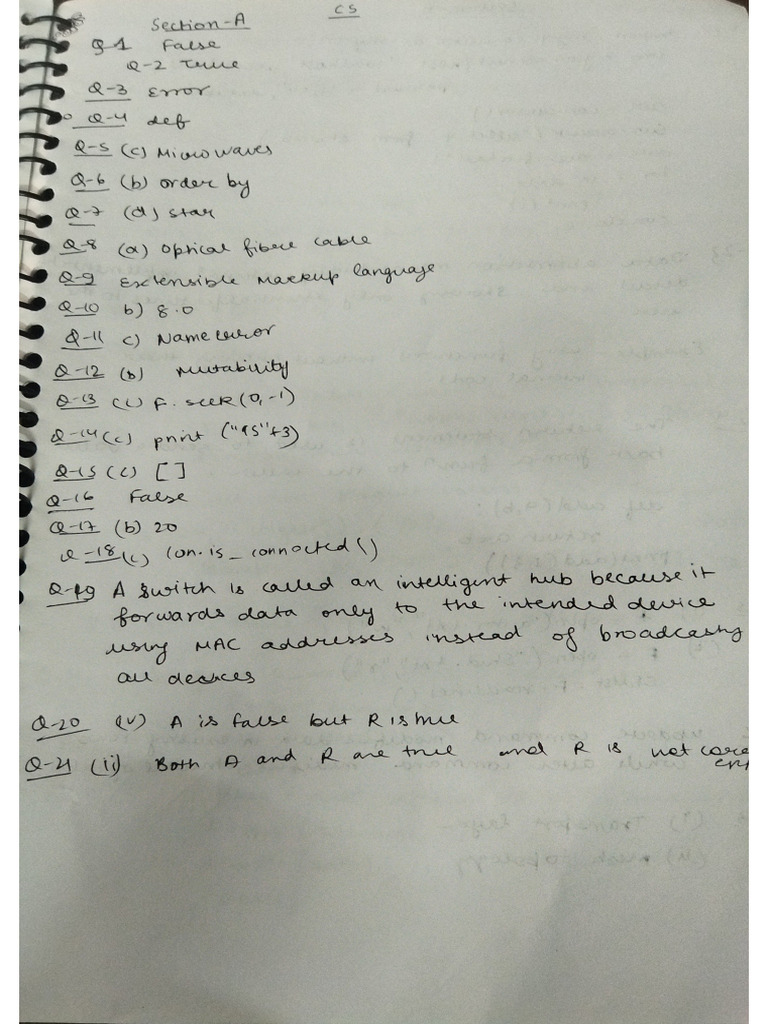 CS
Section-A
Q-1 False
Q-2 True
Q-3 Error
Q-4 def
Q-5 (c) Microwaves
Q-6 (b) order by
Q-7 (d) star
Q-8 (a) optical fibre cable
Q-9 Extensible Markup language
Q-10 b) 8.0
Q-11 c) Name error
Q-12 (b) Mutability
Q-13 (c) F. seek (0,-1)
Q-14 (c) print ("15"+3)
Q-15 (c) []
Q-16 False
Q-17 (b) 20
Q-18 (c) con.is_connected()
Q-19 A switch is called an intelligent hub because it
forwards data only to the intended device
using MAC addresses instead of broadcasting
all devices
Q-20 (v) A is false but R is true
Q-21 (ii) Both A and R are true and R is not